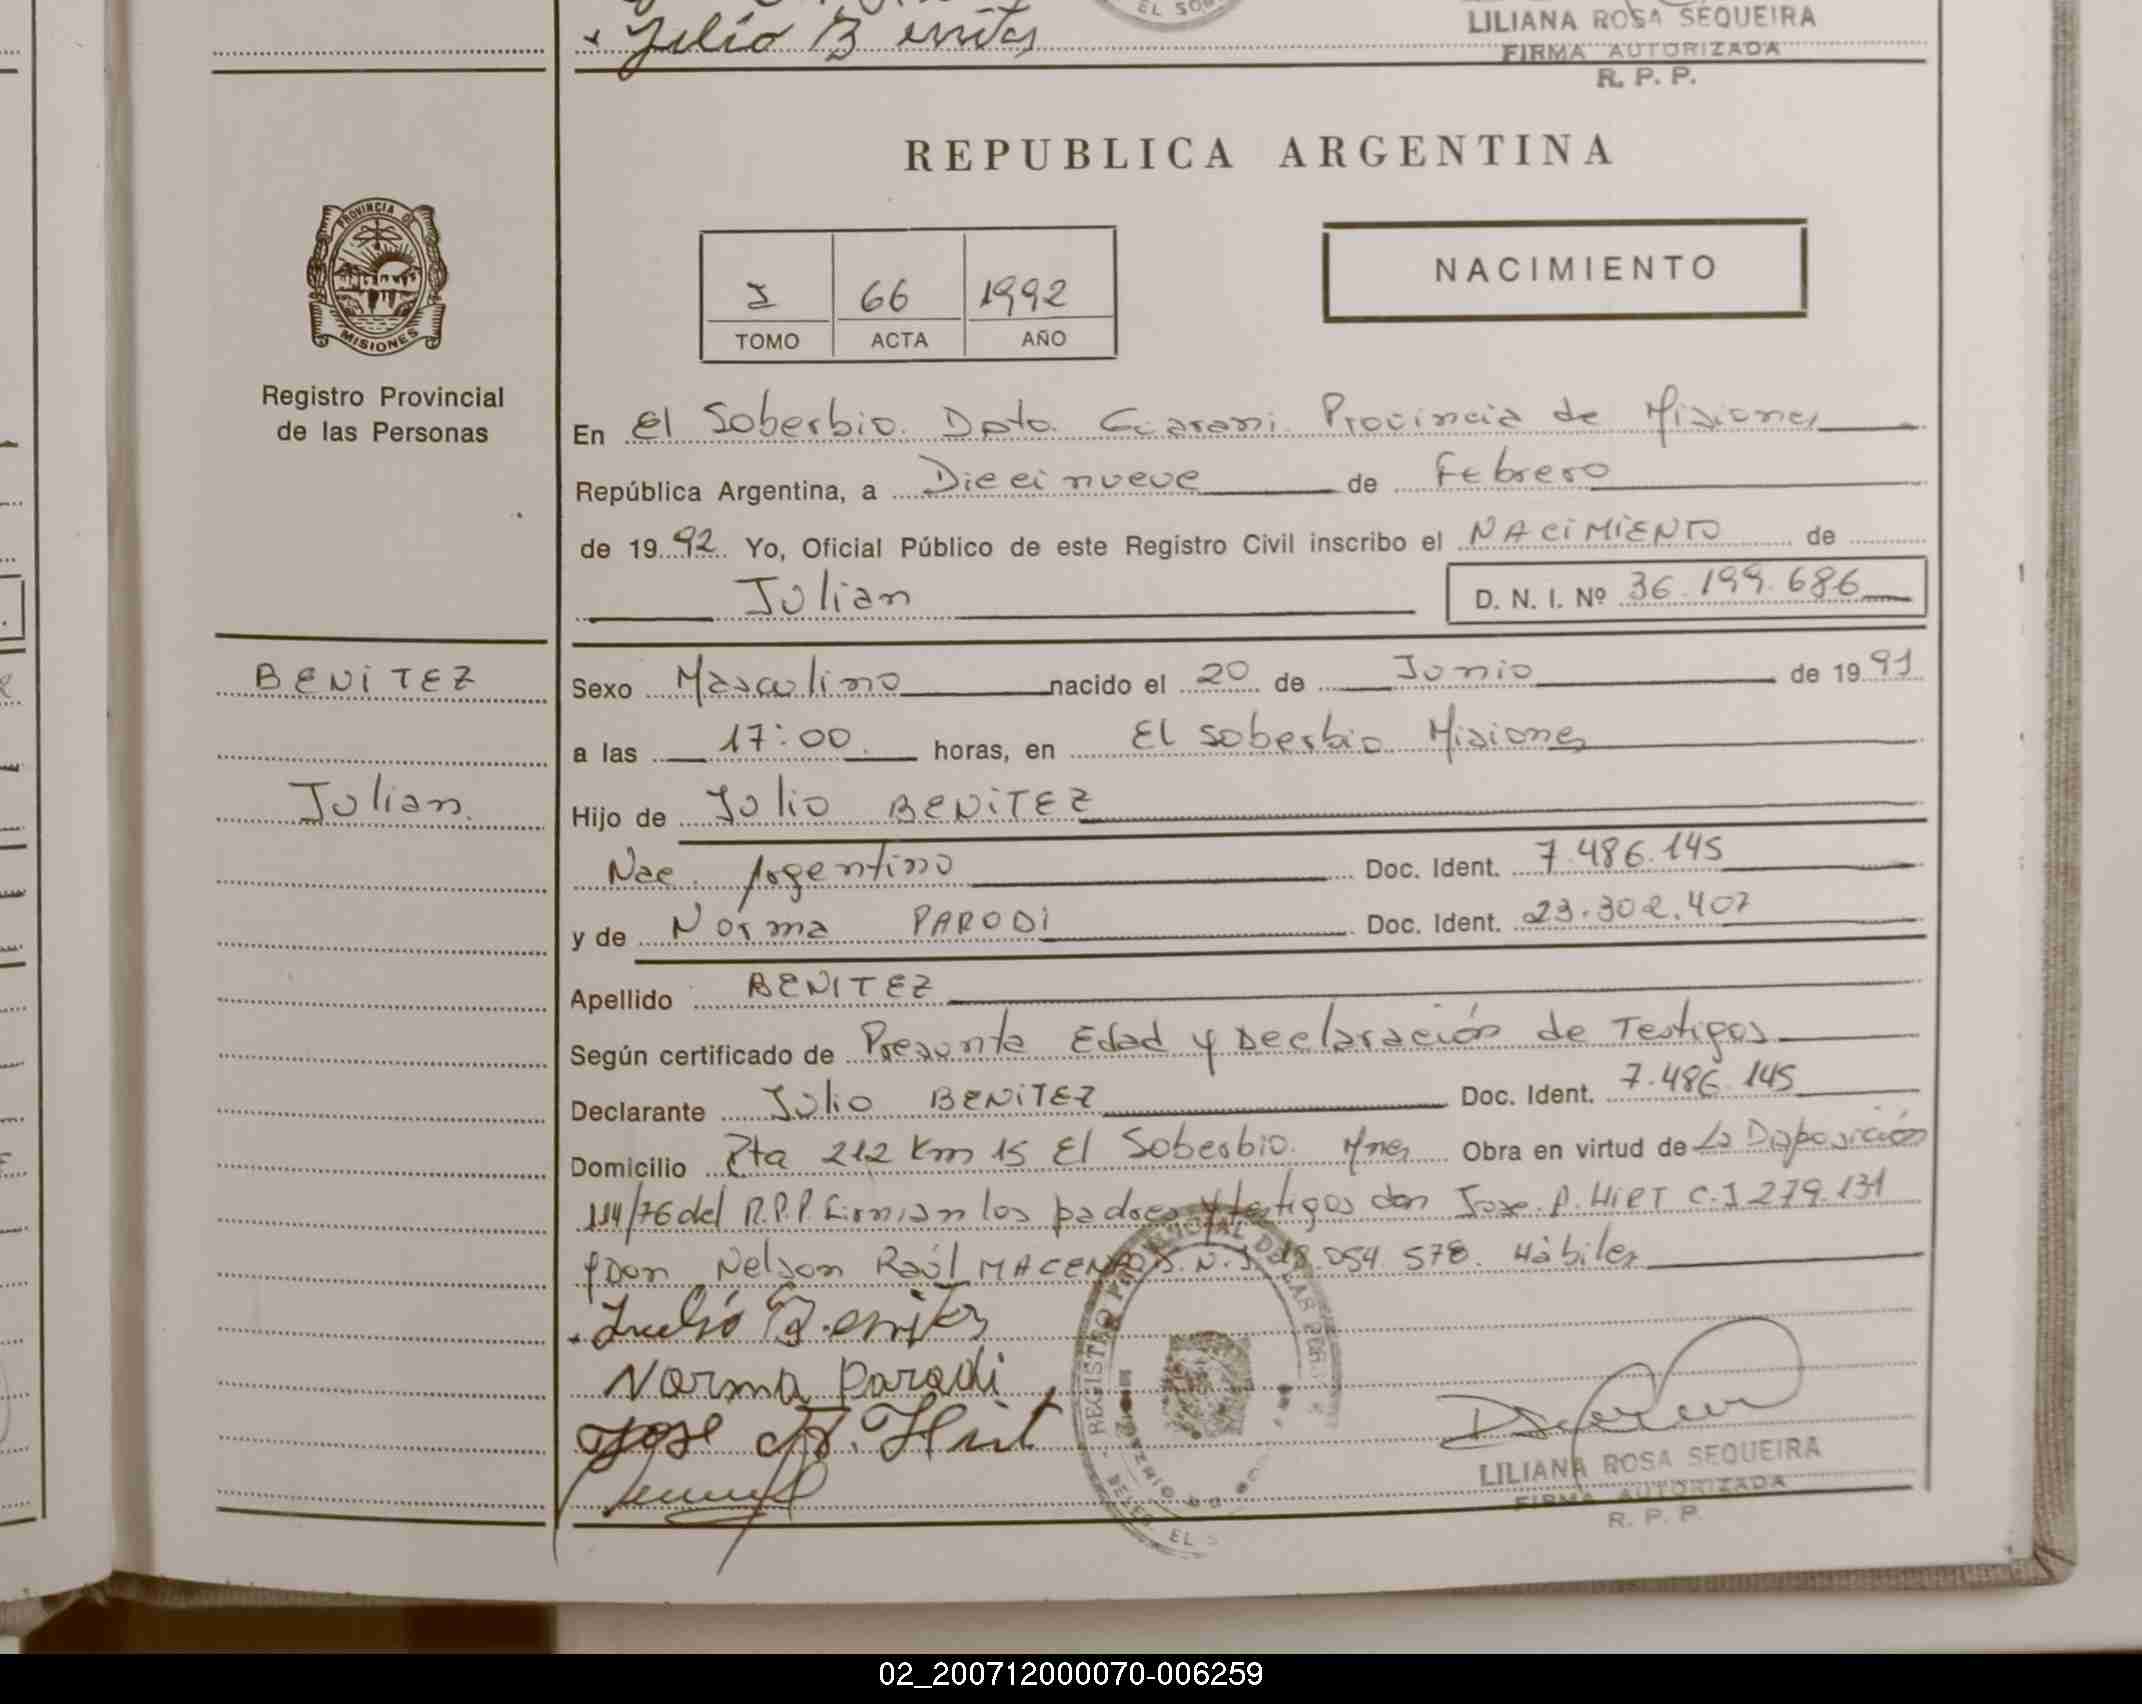 Julio Benites
EL SOB
LILIANA ROSA SEQUEIRA
FIRMA AUTORIZADA
R. P. P.
REPUBLICA ARGENTINA
PROVINCIA DE
MISIONES
Registro Provincial
de las Personas
I 66 1992
TOMO ACTA AÑO
NACIMIENTO
En El Soberbio. Dpto. Guarani. Provincia de Misiones
República Argentina, a Diecinueve de Febrero
de 1992. Yo, Oficial Público de este Registro Civil inscribo el NACIMIENTO de
Julian
D. N. I. Nº 36.199.686
BENITEZ
Julian.
Sexo Masculino nacido el 20 de Junio de 1991
a las 17:00. horas, en El Soberbio Misiones
Hijo de Julio BENITEZ
Nac. Argentino Doc. Ident. 7.486.145
y de Norma PARODI Doc. Ident. 23.302.407
Apellido BENITEZ
Según certificado de Presunta Edad y Declaración de Testigos
Declarante Julio BENITEZ Doc. Ident. 7.486.145
Domicilio Rta 212 Km 15 El Soberbio. Mnes Obra en virtud de La Disposición
114/76 del R.P.P. firman los padres y testigos don Jose. A. HIRT C.I 279.131
y Don Nelson Raúl D.N.I. 18.054.578. Hàbiles
Julio Benites
Norma Parodi
Jose A. Hirt
REGISTRO PROVINCIAL DE LAS PER
EL
LILIANA ROSA SEQUEIRA
FIRMA AUTORIZADA
R. P. P.
02_200712000070-006259